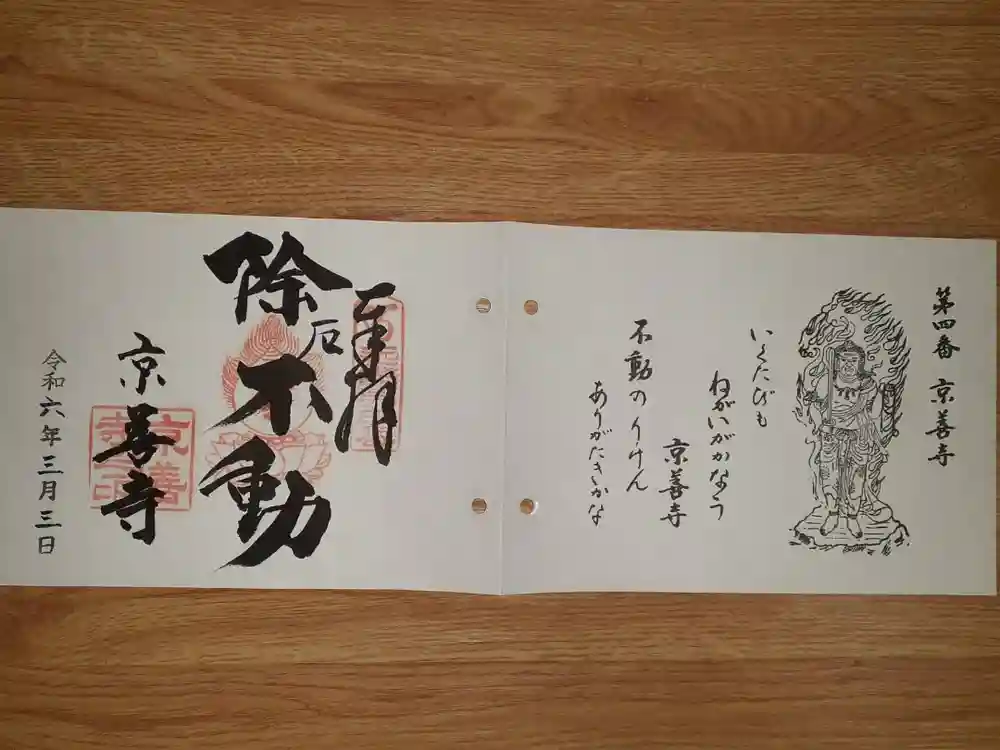 第四番 京善寺
いくたびも
ねがいがかなう
京善寺
不動のりけん
ありがたきかな
奉拝
除厄不動
京善寺
令和六年三月三日